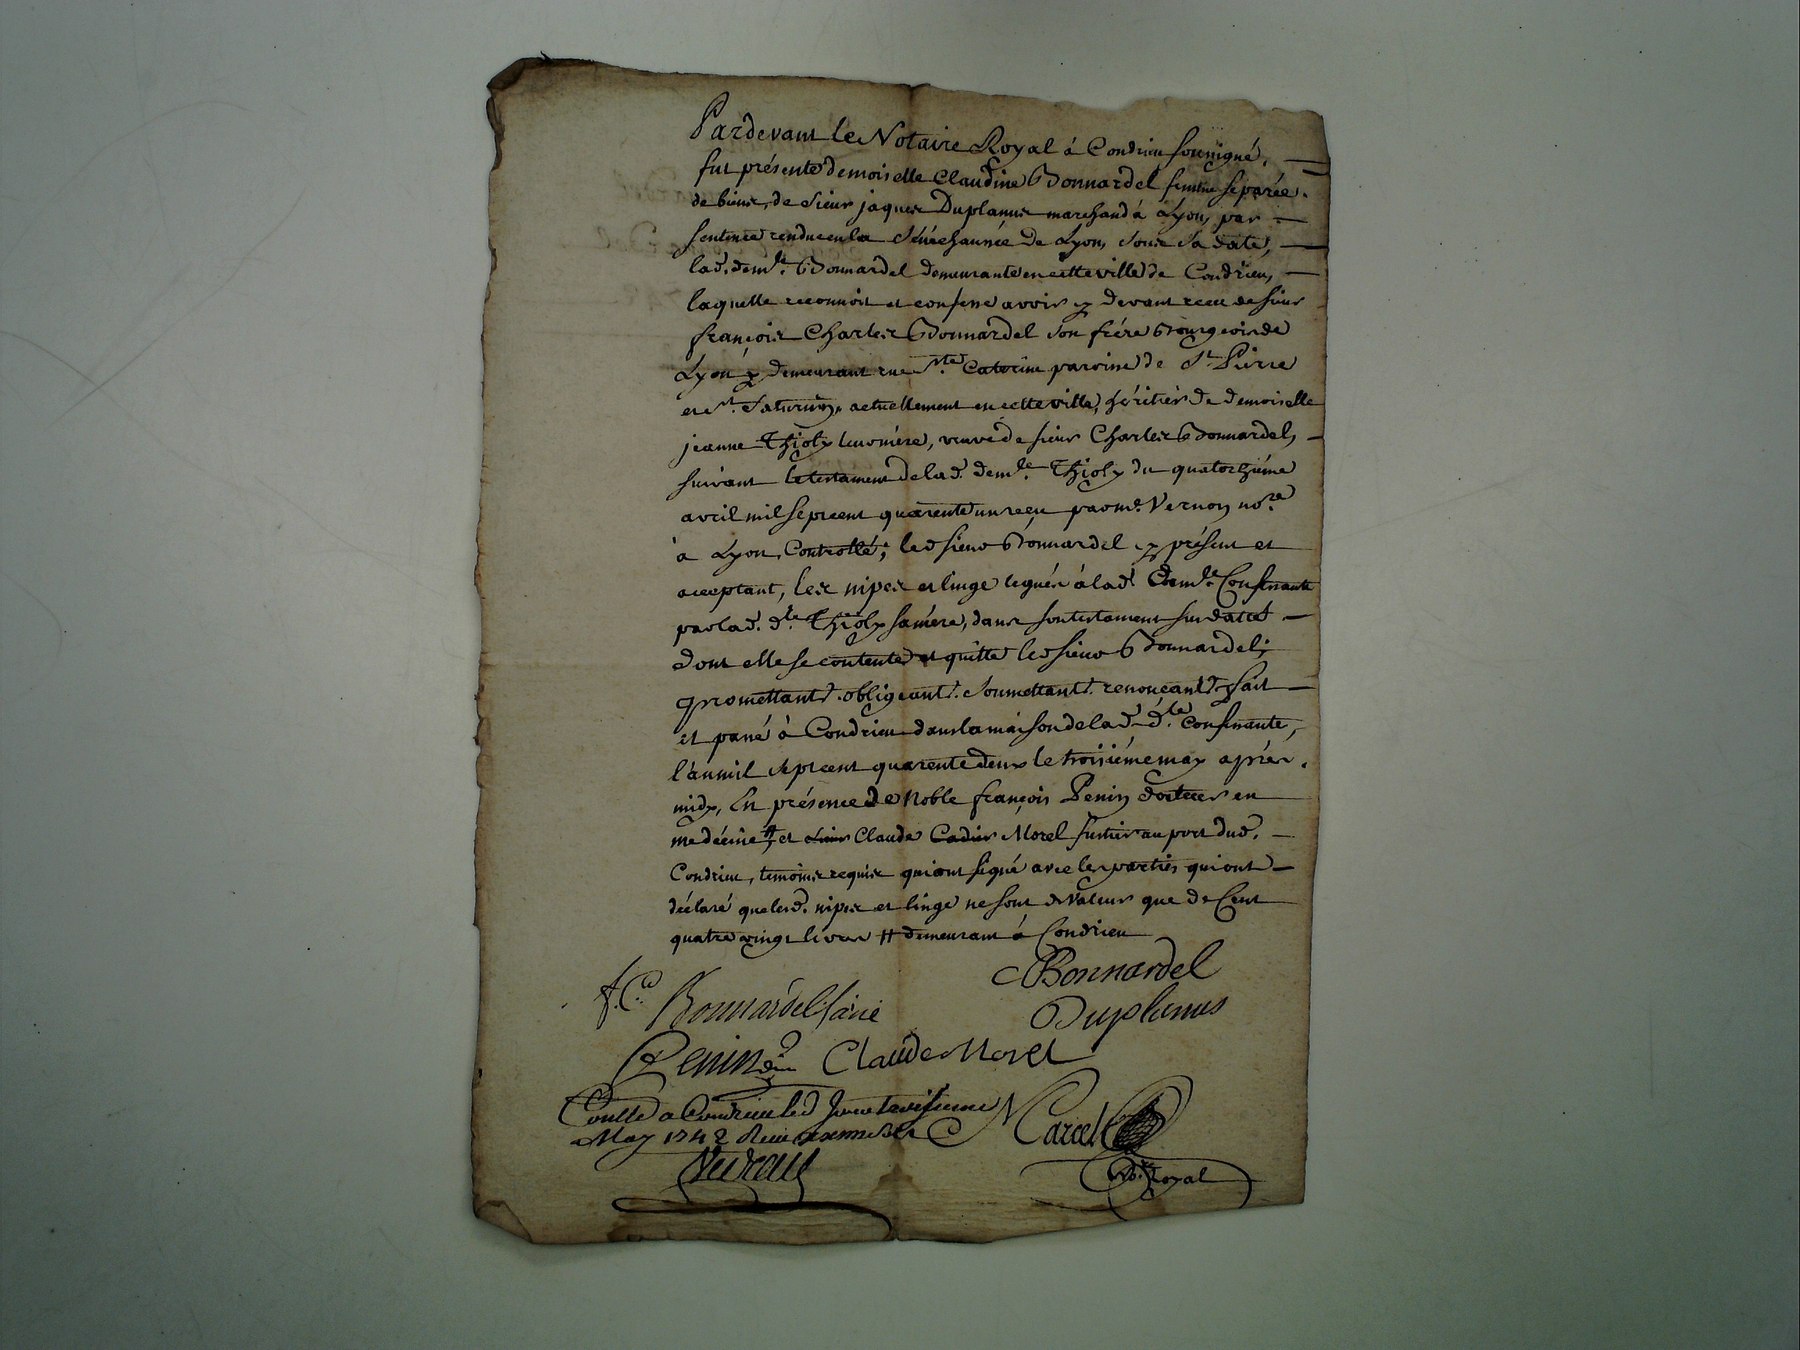 Pardevant le Notaire Royal à Condrieu soussigné,
fut présente demoiselle Claudine Bonnardel femme separée
de biens, de sieur jaques Duplanus marchand à Lyon, par
sentence rendue en la sénéchaussée de Lyon, sous sa date,
lad. demlle. Bonnardel demeurante en cette ville de Condrieu,
laquelle reconnoit et confesse avoir cy devant receu de sieur
françois Charles Bonnardel son frére Bourgeois de
Lyon y demeurant rue Ste. Caterine paroisse de St. Pierre
et St. Saturnin, actuellement en cette ville, héritier de demoiselle
jeanne Thioly leur mére, veuve de sieur Charles Bonnardel,
suivant le testament de lad. demlle. Thioly du quatorziéme
avril mil sept cent quarente un receu par me. Vernon nore.
à Lyon, Controllé; led sieur Bonnardel cy présent et
acceptant, les nipes et linge legués à lad. demlle. Confessante
par lad. dlle. Thioly sa mére, dans son testament susdatté
dont elle se contente et quitte led sieur Bonnardel;
promettant. obligeant. soumettant. renonçant. fait
et passé à Condrieu dans la maison de lad. dlle. confessante,
l'an mil sept cent quarente deux le troisiéme may aprés
midy, En présence de Noble françois Penin docteur en
medécine ╫, et sieur Claude Cadier Morel fustier au port dud.
Condrieu, temoins requis qui ont signé avec les parties qui ont
déclaré que lesd. nipes et linge ne sont de valeur que de Cent
quatre vingt livres ╫ demeurant à Condrieu
CBonnardel
f. C. Bonnardel
Duplanus
Penin Claude Morel
Conllé a Condrieu led jour troisieme
May 1742 Receu
Marcel
Nore. Royal